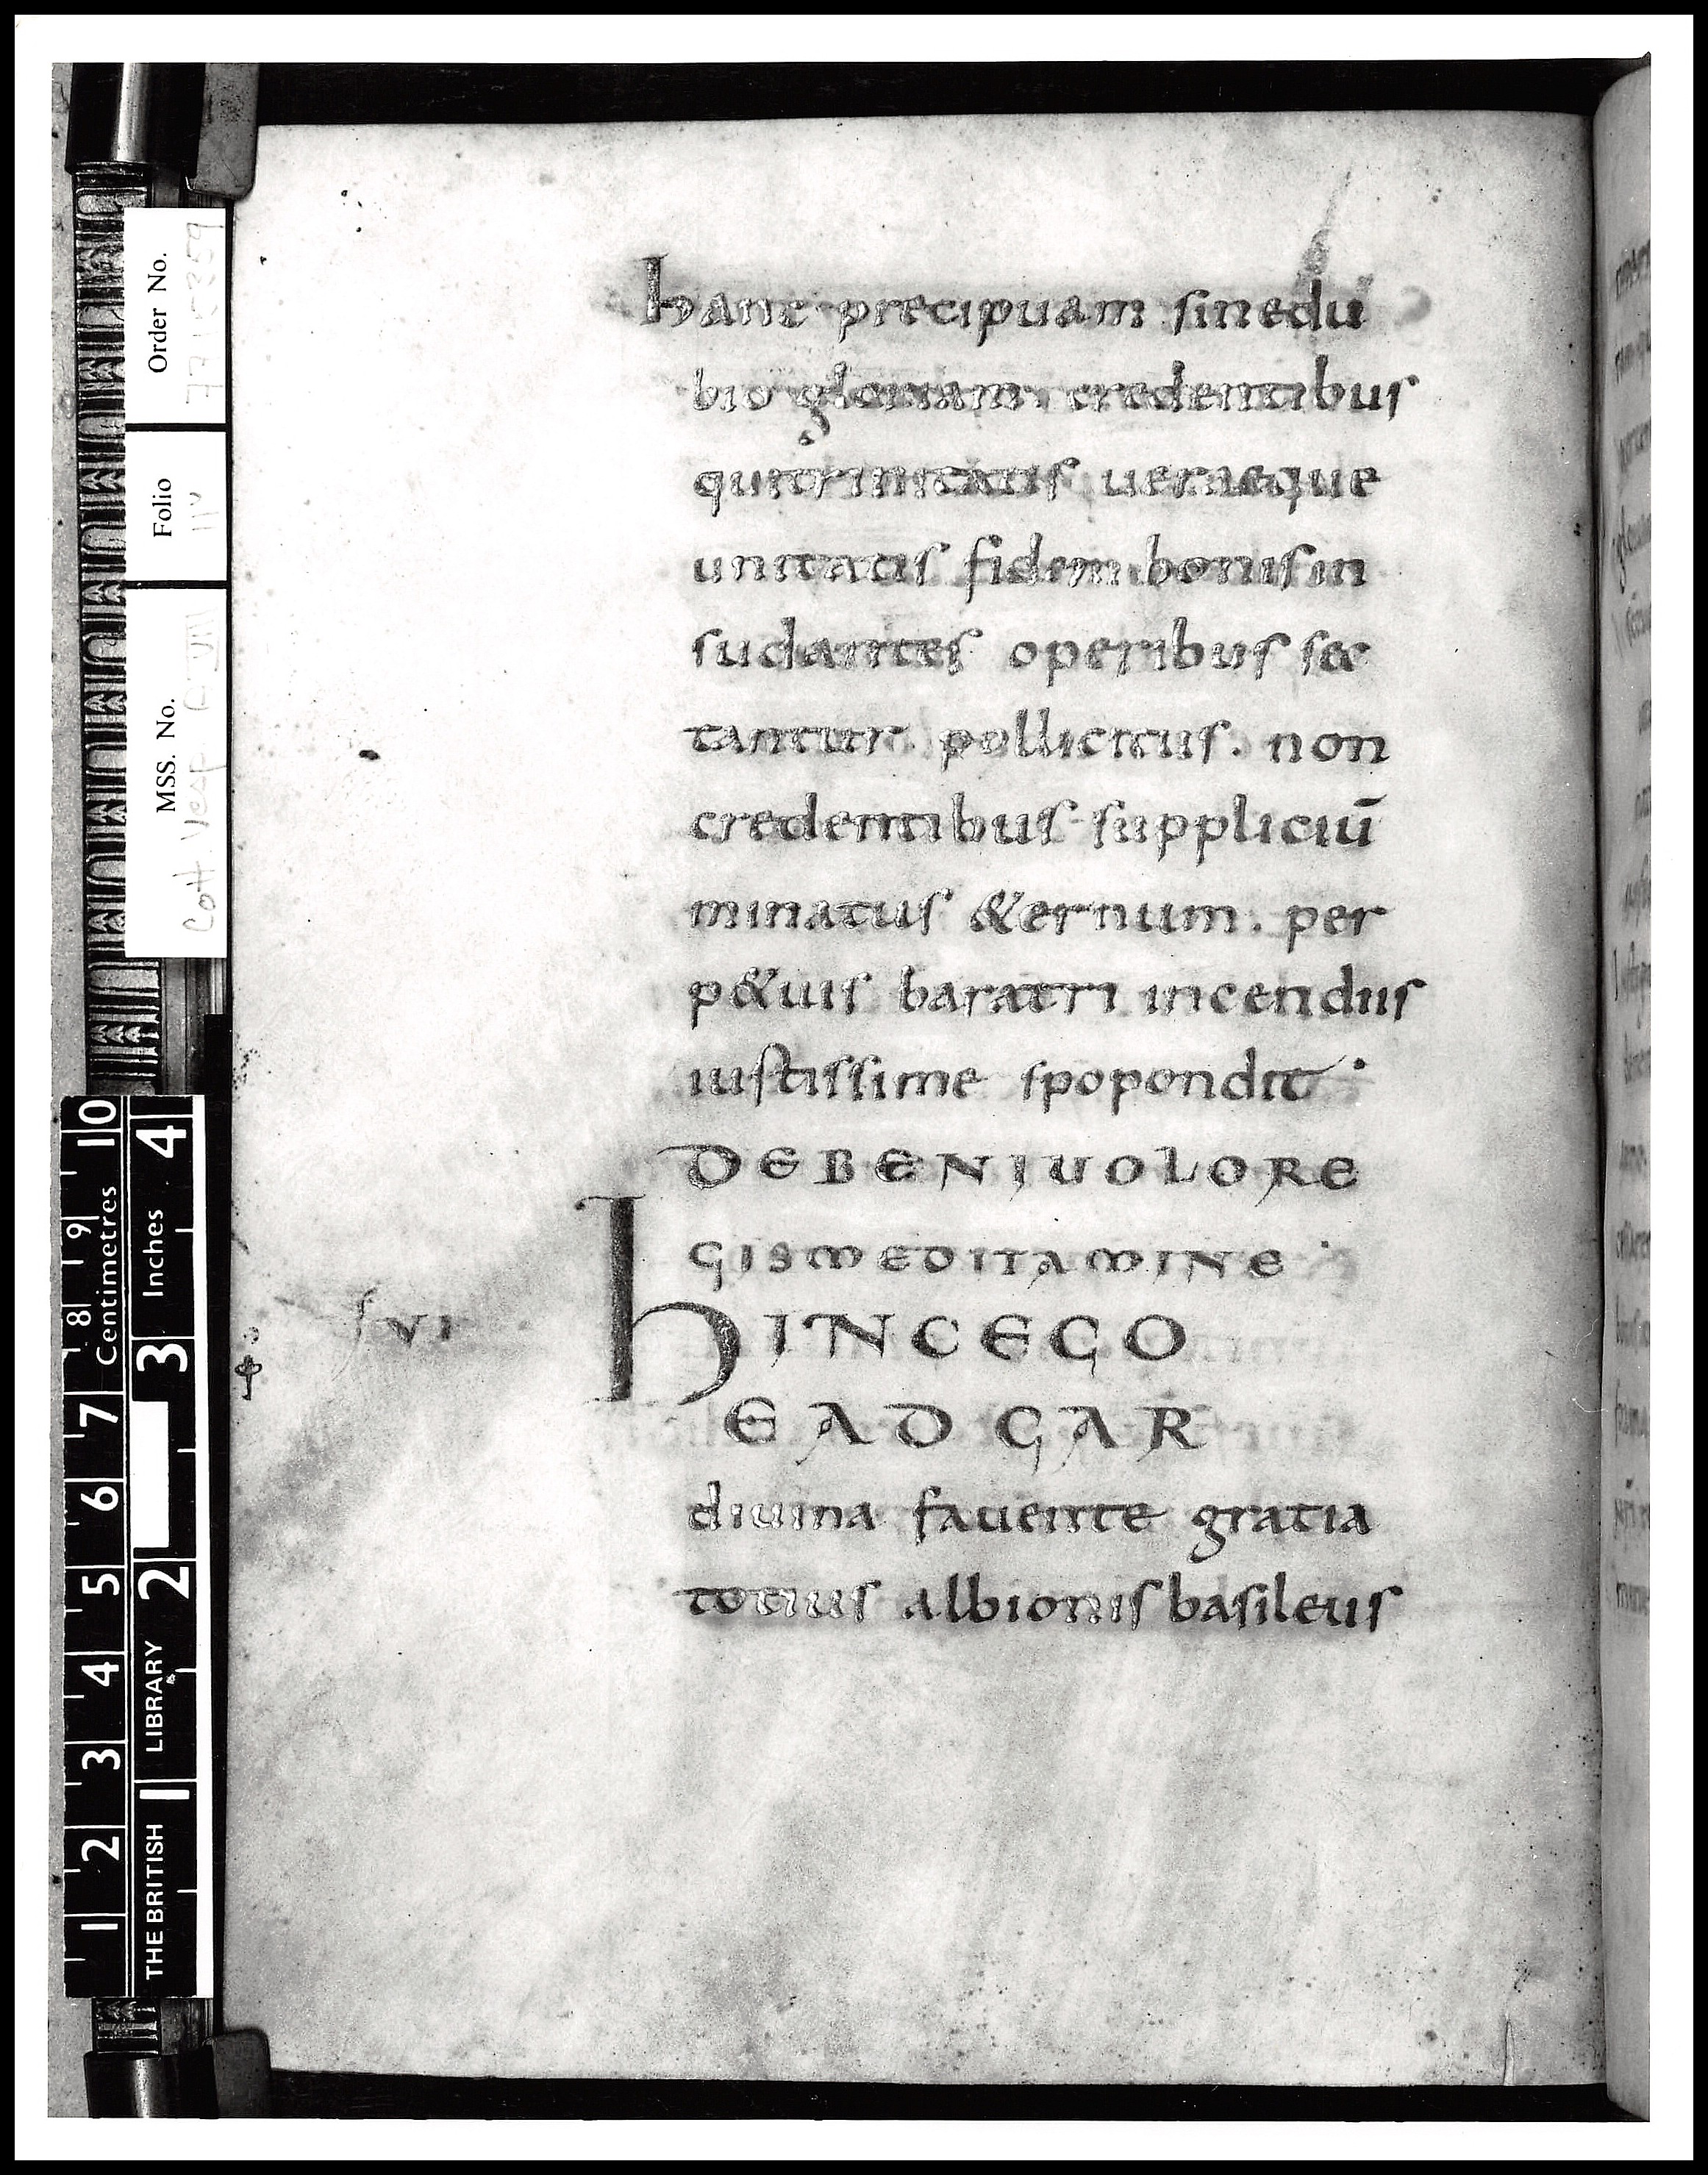 hanc precipuam sine du
bio gloriam. credentibus
qui trinitatis ueraeque
unitatis fidem bonis in
sudantes operibus sec
tantur pollicitus. non
credentibus suppliciū
minatus &ernum. per
p&uis baratri incendiis
iustissime spopondit
DE BENIUOLO RE
GIS MEDITAMINE
HINC EGO
EADGAR
diuina fauente gratia
totius albionis basileus
VI
Order No.
Folio 11v
MSS. No. Cott Vesp A VIII
THE BRITISH LIBRARY
1 2 3 4 Inches
1 2 3 4 5 6 7 8 9 10 Centimetres